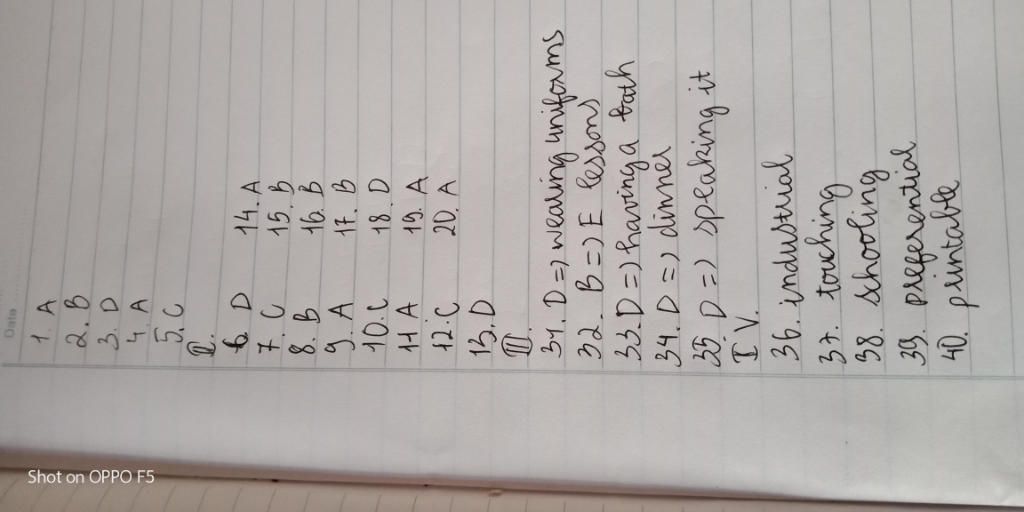 Date
1. A
2. B
3. D
4. A
5. C
II.
6. D 14. A
7. C 15. B
8. B 16. B
9. A 17. B
10. C 18. D
11 A 19. A
12. C 20. A
13. D
III.
31. D => wearing uniforms
32. B => E lessons
33. D => having a bath
34. D => dinner
35 D => speaking it
IV.
36. industrial
37. touching
38. schooling
39. preferential
40. printable
Shot on OPPO F5